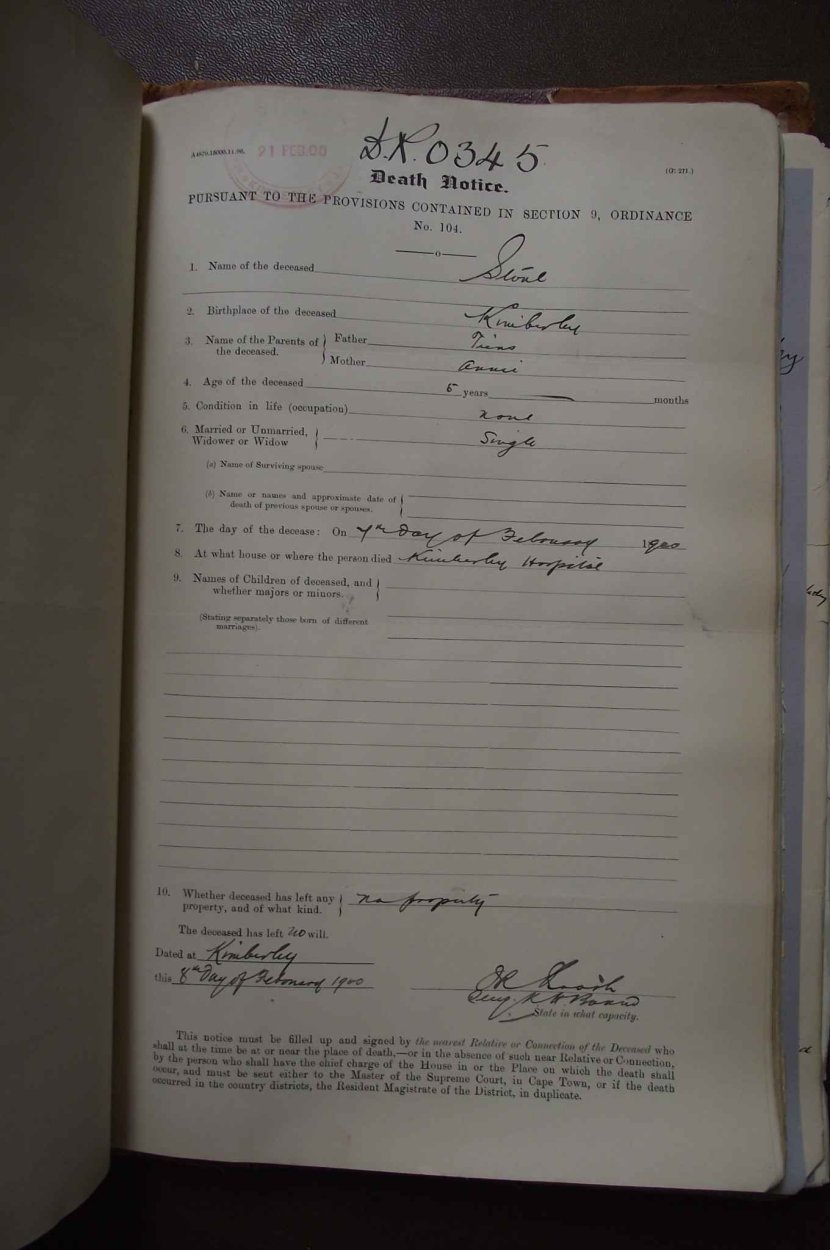 A4670.15000.11.98.
21 FEB.00
D.R. 0345
(G. 271.)
Death Notice.
PURSUANT TO THE PROVISIONS CONTAINED IN SECTION 9, ORDINANCE
No. 104.
1. Name of the deceased
2. Birthplace of the deceased Kimberley
3. Name of the Parents of the deceased. Father
Mother Annie
4. Age of the deceased 5 years — months
5. Condition in life (occupation) none
6. Married or Unmarried, Widower or Widow Single
(a) Name of Surviving spouse
(b) Name or names and approximate date of death of previous spouse or spouses.
7. The day of the decease: On 7th Day of February 1900
8. At what house or where the person died Kimberley Hospital
9. Names of Children of deceased, and whether majors or minors.
(Stating separately those born of different marriages).
10. Whether deceased has left any property, and of what kind. no property
The deceased has left no will.
Dated at Kimberley
this 8th Day of February 1900
K H Board
State in what capacity.
This notice must be filled up and signed by the nearest Relative or Connection of the Deceased who
shall at the time be at or near the place of death,—or in the absence of such near Relative or Connection,
by the person who shall have the chief charge of the House in or the Place on which the death shall
occur, and must be sent either to the Master of the Supreme Court, in Cape Town, or if the death
occurred in the country districts, the Resident Magistrate of the District, in duplicate.